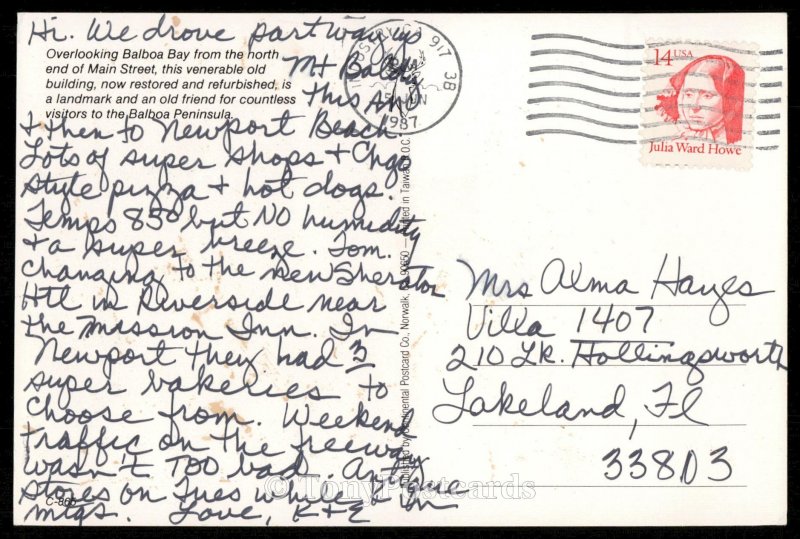 Hi. We drove part way up
Mt Baldy
this aft
+ then to Newport Beach.
Lots of super shops + Chgo
style pizza + hot dogs.
Temps 85° but NO humidity
+ a super breeze. Tom.
changing to the new Sheraton
Htl in Riverside near
the Mission Inn. In
Newport they had 3
super bakeries to
choose from. Weekend
traffic on the freeway
wasn't TOO bad. Antique
stores on Tues while F in
mtgs. Love, K+E
Overlooking Balboa Bay from the north
end of Main Street, this venerable old
building, now restored and refurbished, is
a landmark and an old friend for countless
visitors to the Balboa Peninsula.
C-866
Published by Continental Postcard Co., Norwalk, CA 90650 — Printed in Taiwan R.O.C.
INDUSTRY CA 917 3B
PM
JUN
1987
14 USA
Julia Ward Howe
Mrs Alma Hayes
Villa 1407
210 Lk. Hollingsworth
Lakeland, Fl
33803
© TonyPostcards